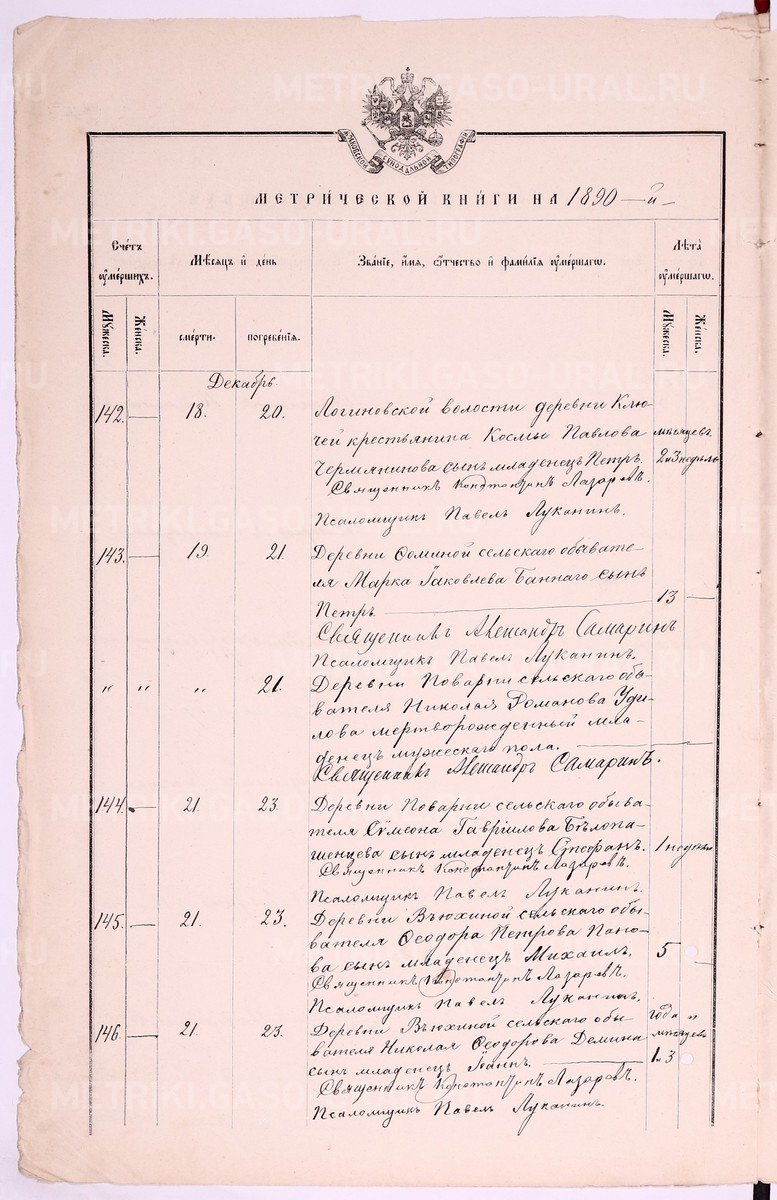 METRIKI.GASO-URAL.RU
МОСКОВСКОЙ СѴНОДАЛЬНОЙ ТИПОГРАФІИ
МЕТРИ́ЧЕСКОЙ КНИ́ГИ НА 1890-й
Сче́тъ ᲂу҆ме́ршихъ.
Мѣ́сяцъ и҆ де́нь
Зва́нїе, и҆́мя, ѻ҆́тчество и҆ фами́лїя ᲂу҆ме́ршагѡ.
Лѣ́та ᲂу҆ме́ршагѡ.
Мꙋ́жеска. Же́нска. сме́рти. погребе́нїя. Мꙋ́жеска. Же́нска.
Декабрь
142. — 18. 20. Логиновской волости деревни Клю-
чей крестьянина Космы Павлова мѣсяцевъ
Чермянинова сынъ младенецъ Петръ. 2 и 3 недѣль
Священникъ Константинъ Лазаревъ.
Псаломщикъ Павелъ Луканинъ.
143. — 19. 21. Деревни Ѳоминой сельскаго обывате-
ля Марка Іаковлева Баннаго сынъ
Петръ. 13 —
Священникъ Александръ Самаринъ
Псаломщикъ Павелъ Луканинъ.
" " " 21. Деревни Поварни сельскаго обы-
вателя Николая Романова Уди-
лова мертворожденный мла-
денецъ мужескаго пола. —
Священникъ Александръ Самаринъ.
144. — 21. 23. Деревни Поварни сельскаго обыва-
теля Сѵмеона Гавріилова Бѣлопа-
шенцева сынъ младенецъ Стефанъ. 1 недѣли
Священникъ Константинъ Лазаревъ.
Псаломщикъ Павелъ Луканинъ.
145. — 21. 23. Деревни Вьюхиной сельскаго обы-
вателя Ѳеодора Петрова Пано-
ва сынъ младенецъ Михаилъ. 5 —
Священникъ Константинъ Лазаревъ.
Псаломщикъ Павелъ Луканинъ.
146. — 21. 23. Деревни Вьюхиной сельскаго обы- года и
вателя Николая Ѳеодорова Демина мѣсяцевъ
сынъ младенецъ Іоаннъ. 1 и 3
Священникъ Константинъ Лазаревъ.
Псаломщикъ Павелъ Луканинъ.